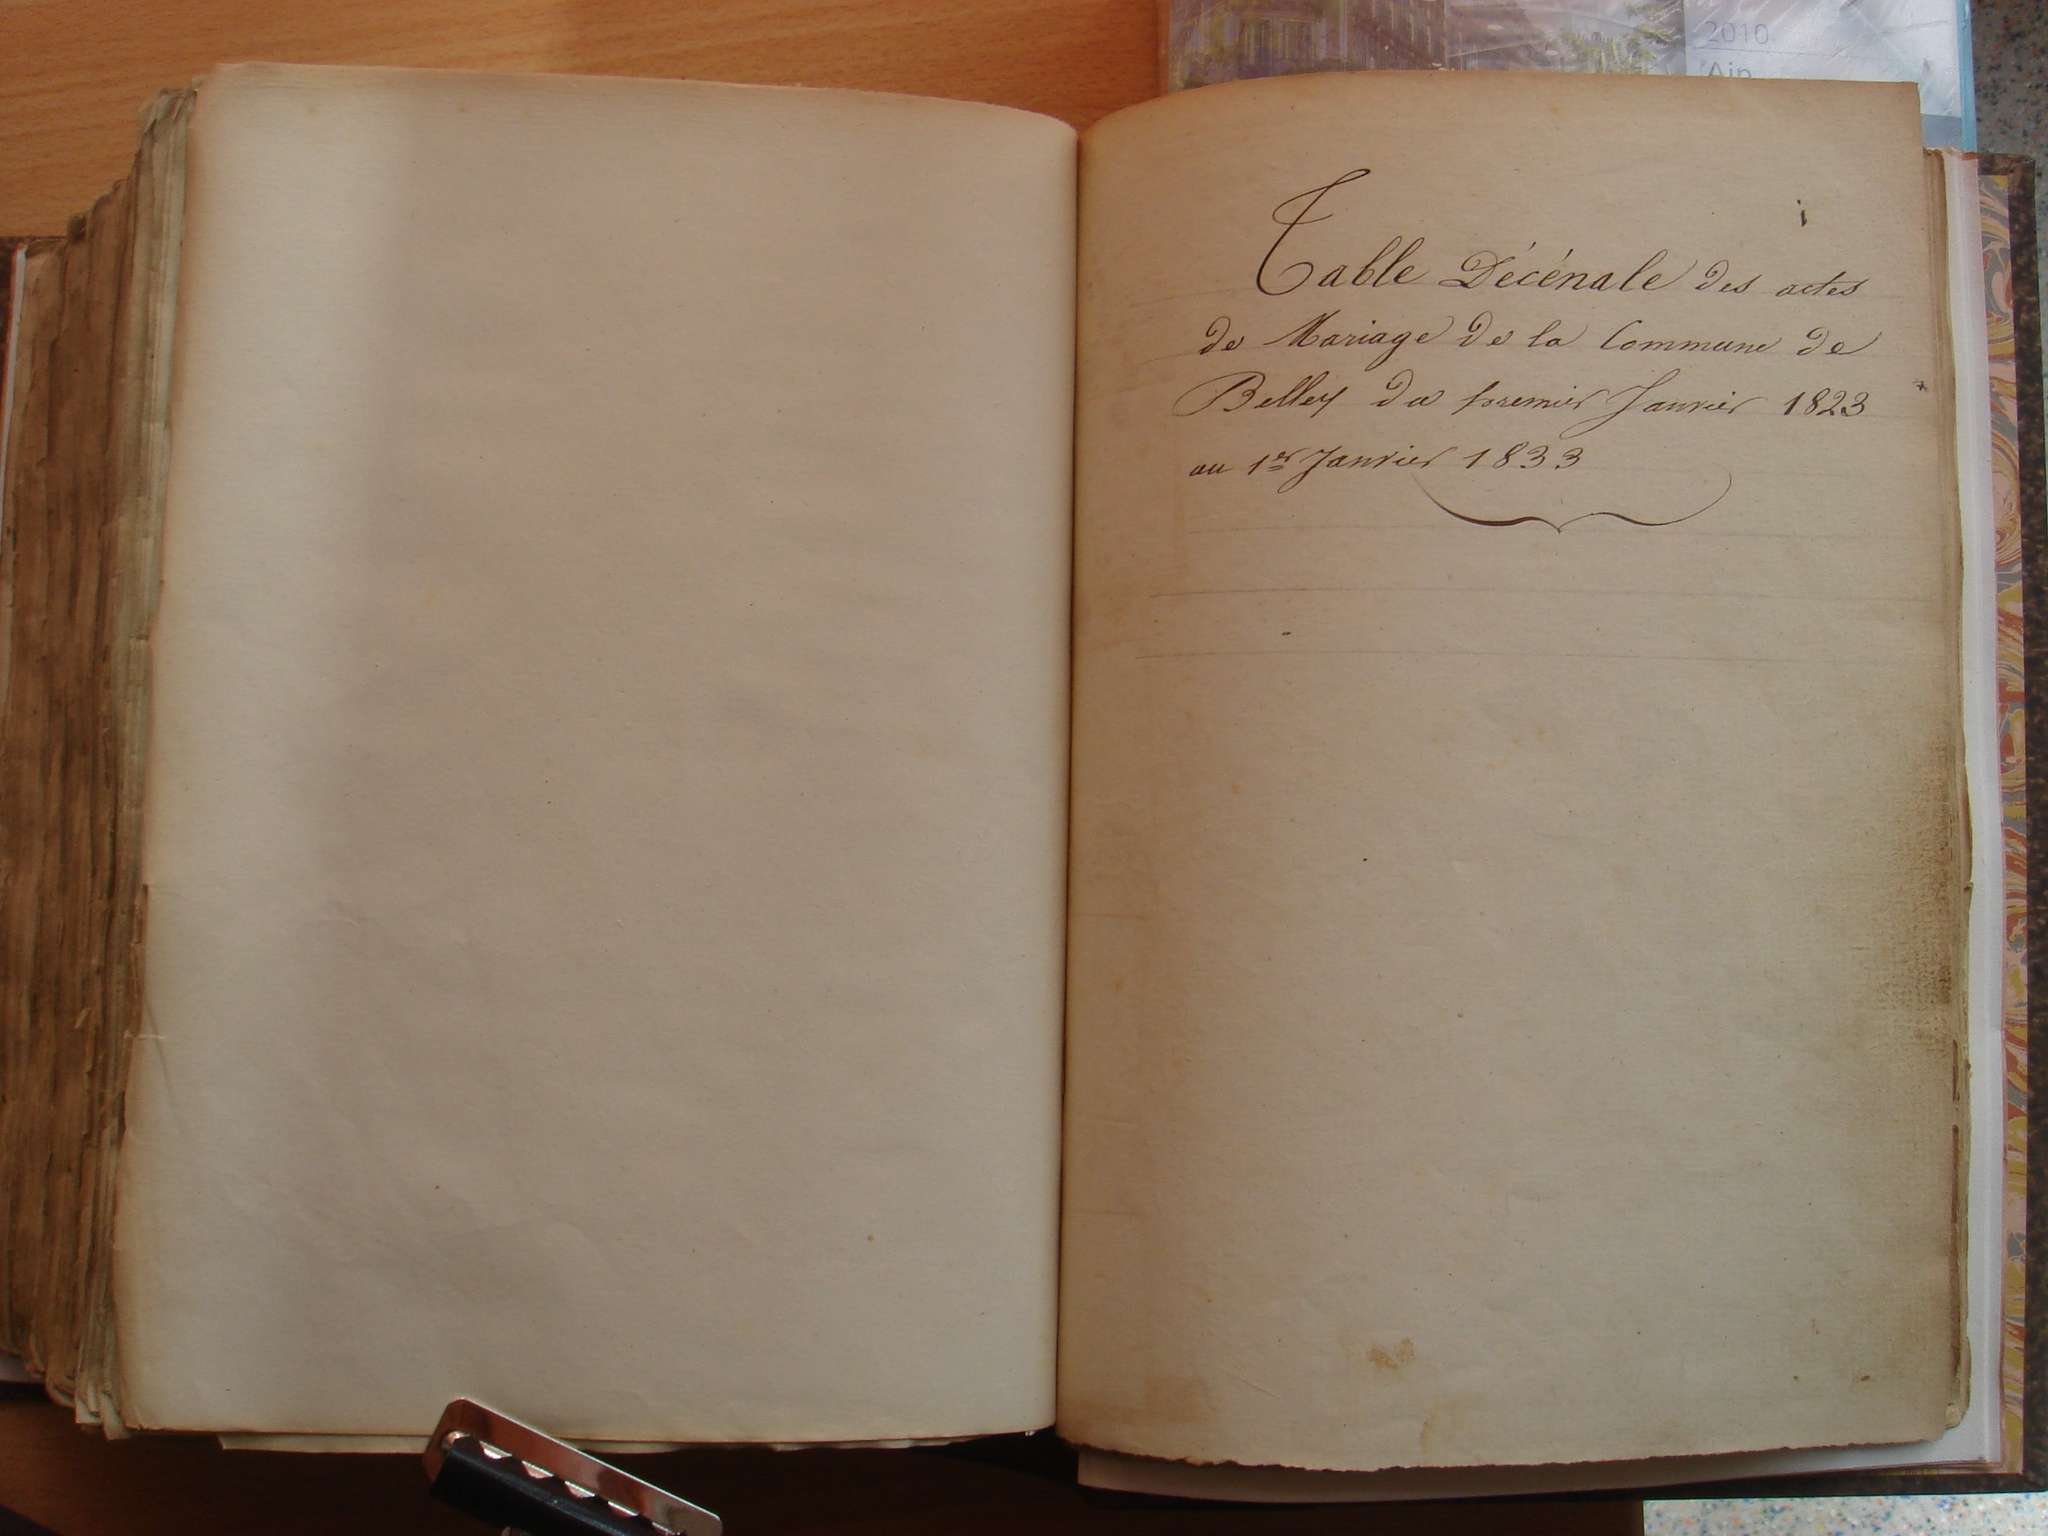 2010
Ain
i
Table Décénale des actes
de Mariage de la Commune de
Belley du premier Janvier 1823
au 1er Janvier 1833